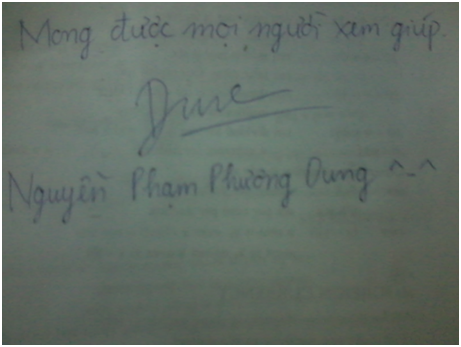 Mong được mọi người xem giúp.
Nguyễn Phạm Phương Dung ^-^